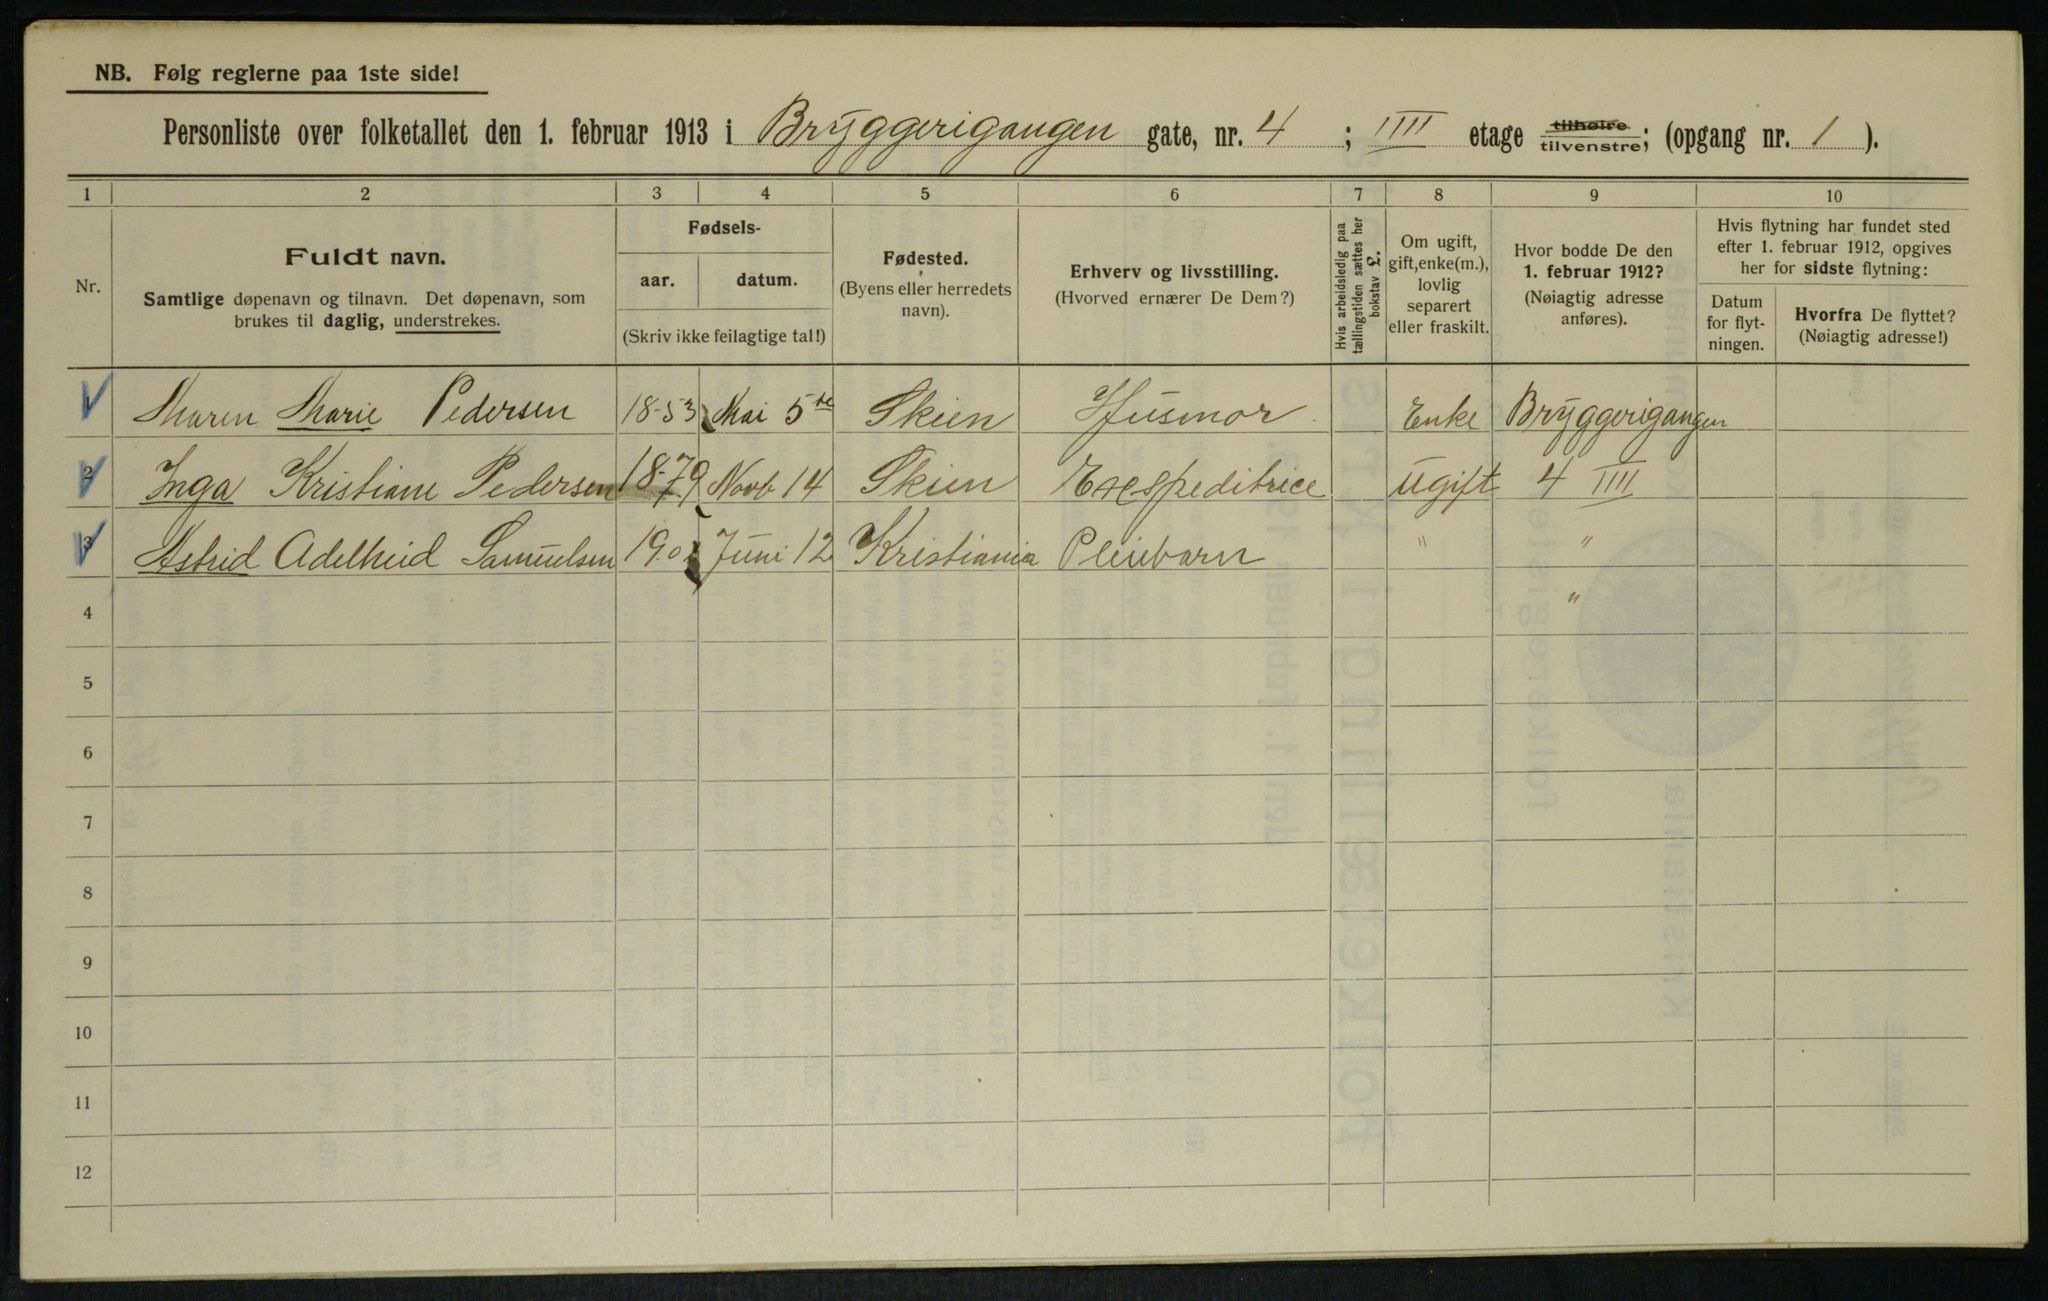 NB. Følg reglerne paa 1ste side!
Personliste over folketallet den 1. februar 1913 i Bryggerigangen gate, nr. 4 ; IIII etage tilhøire tilvenstre; (opgang nr. 1 ).
1 2 3 4 5 6 7 8 9 10
Nr.
Fuldt navn.
Samtlige døpenavn og tilnavn. Det døpenavn, som
brukes til daglig, understrekes.
Fødsels-
aar. datum.
(Skriv ikke feilagtige tal!)
Fødested.
(Byens eller herredets
navn).
Erhverv og livsstilling.
(Hvorved ernærer De Dem?)
Hvis arbeidsledig paa
tællingstiden sættes her
bokstav L.
Om ugift,
gift, enke(m.),
lovlig
separert
eller fraskilt.
Hvor bodde De den
1. februar 1912?
(Nøiagtig adresse
anføres).
Hvis flytning har fundet sted
efter 1. februar 1912, opgives
her for sidste flytning:
Datum
for flyt-
ningen.
Hvorfra De flyttet?
(Nøiagtig adresse!)
1 Maren Marie Pedersen 18-53 Mai 5te Skien Husmor Enke Bryggerigangen
2 Inga Kristiane Pedersen 18-79 Novb 14 Skien Exspeditrice ugift 4 IIII
3 Astrid Adelheid Samuelsen Juni 12 Kristiania Pleiebarn " "
4 "
5
6
7
8
9
10
11
12